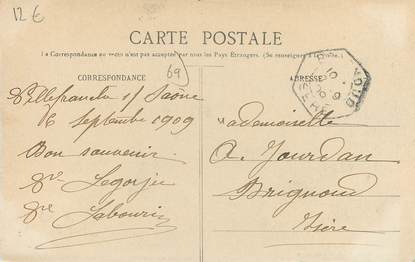 12 €
CARTE POSTALE
La Correspondance au verso n'est pas acceptée par tous les Pays Etrangers. (Se renseigner à la Poste).
CORRESPONDANCE
69
ADRESSE
Villefranche s/ Saône
16 Septembre 1909
Bon souvenir
Mademoiselle
A. Jourdan
Brignoud
Isère
ISERE